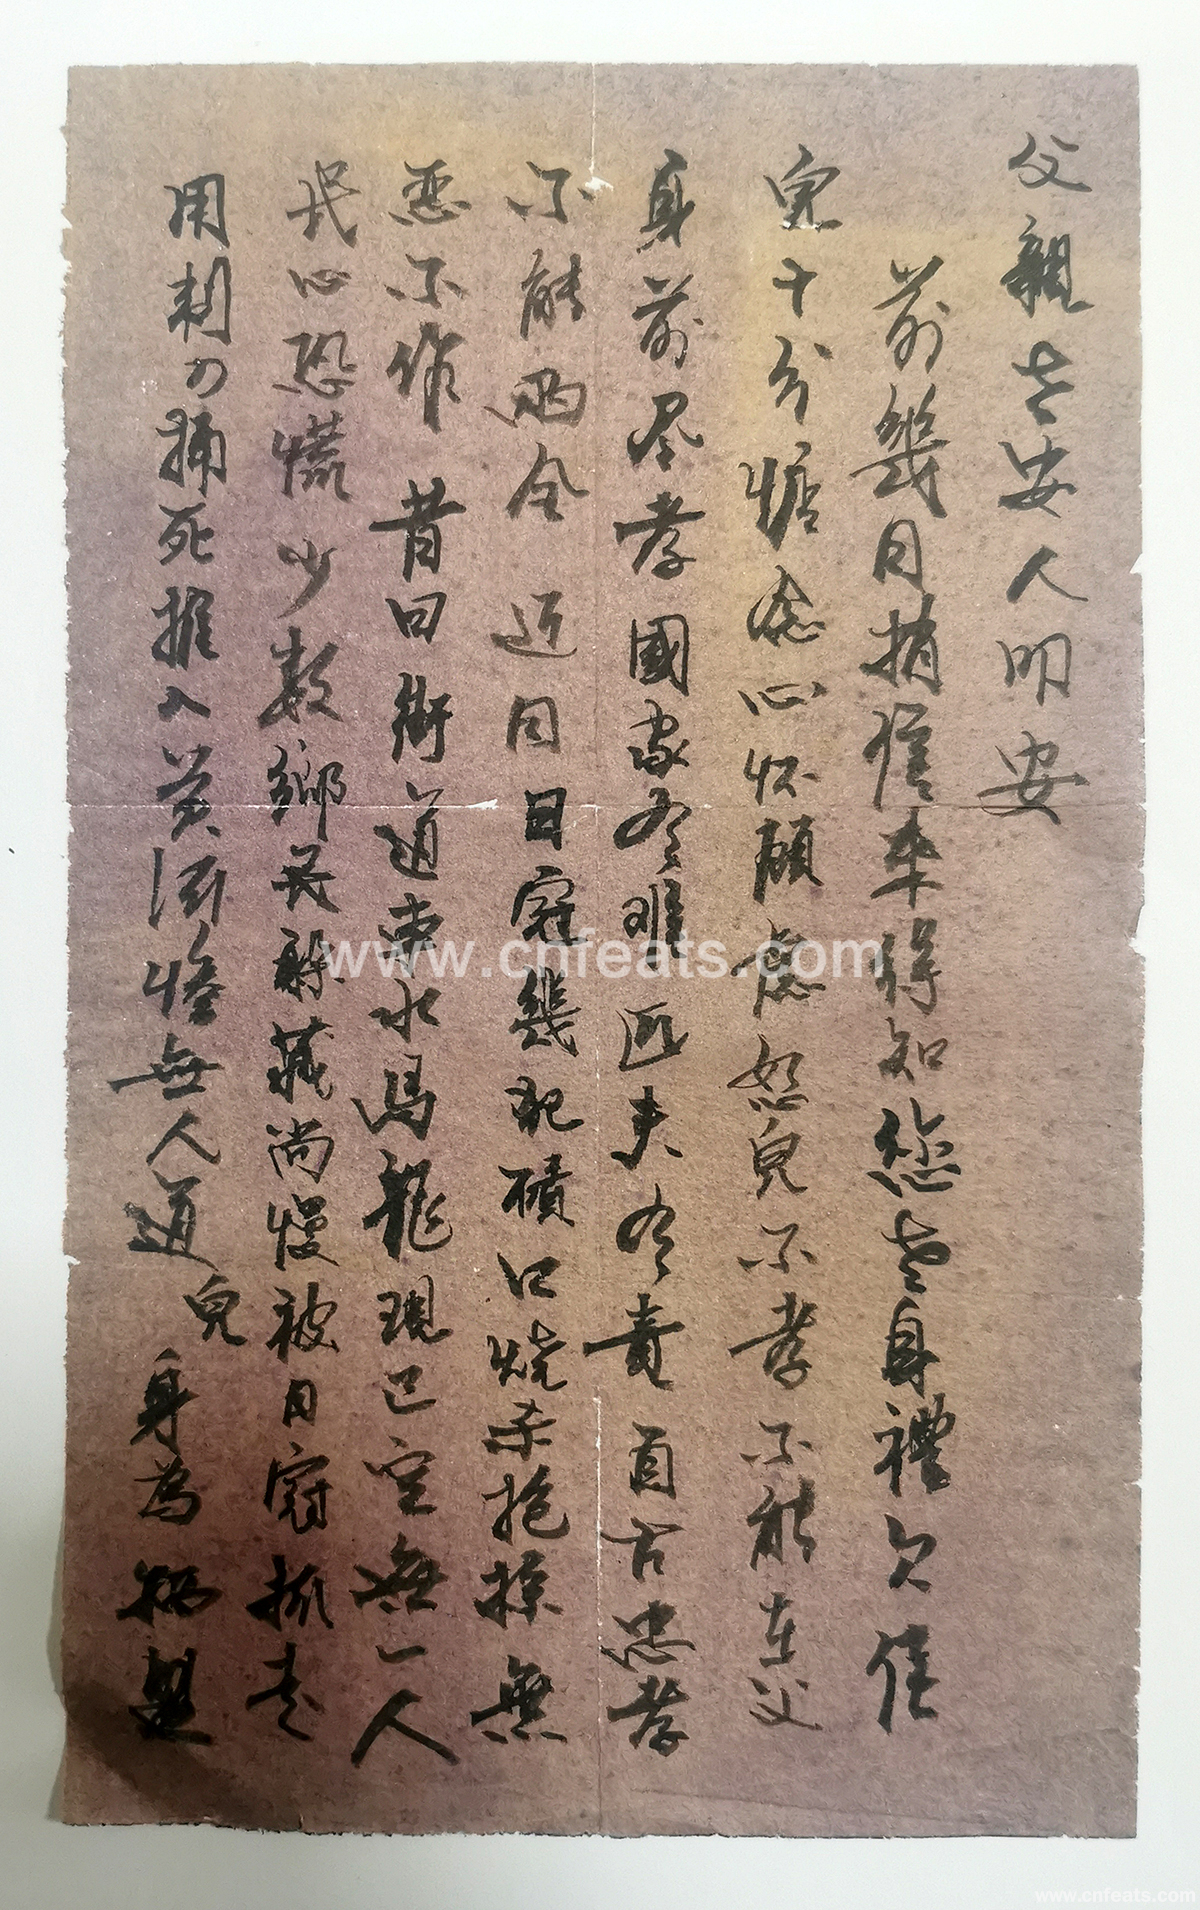 父親大安人明安
前幾日捎信来得知您老身禮欠佳
兒十分惦念心怀顧慮恕兒不孝不能在父
身前尽孝國家有难匹夫有責自古忠孝
不能兩全近日日寇幾犯磧口燒杀抢掠無
恶不作昔日街道車水馬龍現已空無一人
民心恐慌少数鄉民躲藏尚慢被日寇抓走
用刺刀捅死推入黄河惨無人道兒
身為炳
www.cnfeats.com
www.cnfeats.com